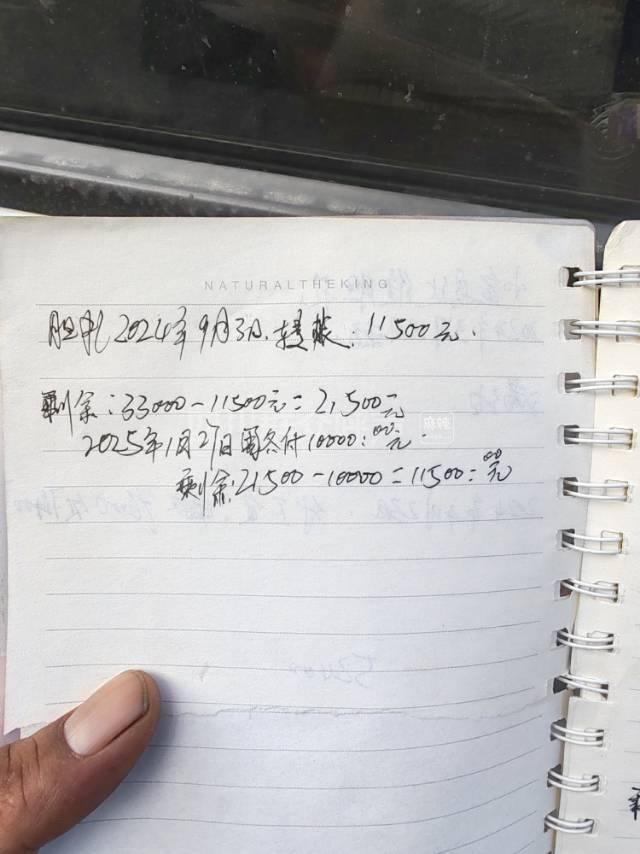 NATURALTHEKING
2024年9月3日.转账:11500元.
剩余:33000-11500元=21500元
2025年1月27日 付10000:00元.
剩余:21500-10000=11500:00元